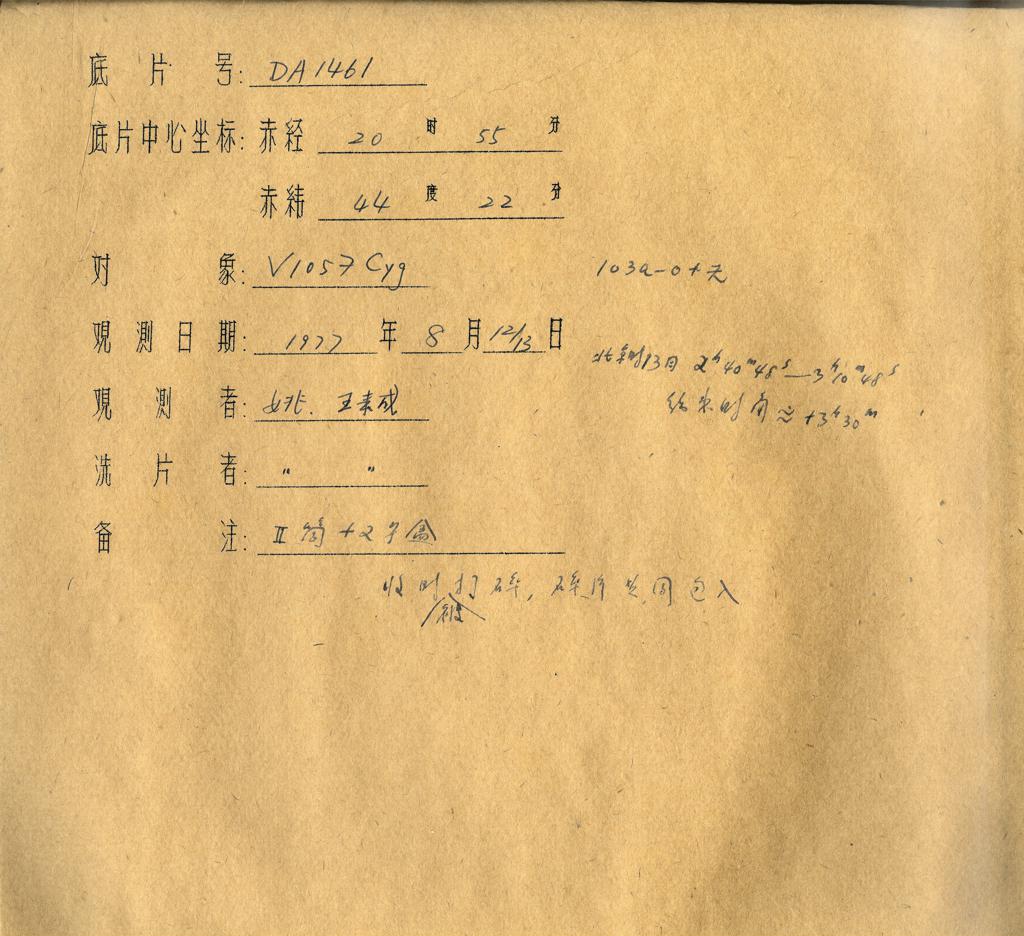 底片号: DA1461
底片中心坐标: 赤经 20 时 55 分
赤纬 44 度 22 分
对象: V1057 Cyg
103a-O+无
观测日期: 1977 年 8 月 12/13 日
北京时13日 2ʰ40ᵐ48ˢ—3ʰ10ᵐ48ˢ
结束时角≈+3ʰ30ᵐ
观测者: 姚、王
洗片者: " "
备注: II 筒+2子盒
收时被打碎, 碎片 包入